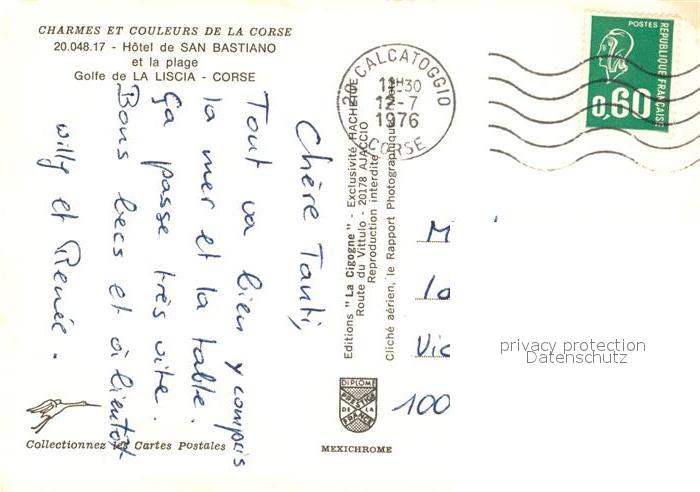 CHARMES ET COULEURS DE LA CORSE
20.048.17 - Hôtel de SAN BASTIANO
et la plage
Golfe de LA LISCIA - CORSE
Chère Tanti,
Tout va bien y compris
la mer et la table.
Ça passe très vite.
Bons becs et à bientôt
Willy et Renée.
Collectionnez les Cartes Postales
Editions "La Cigogne" - Exclusivité HACHETTE
Route du Vittulo - 20178 AJACCIO
Reproduction interdite
Cliché aérien, le Rapport Photographique
DIPLOME
PRESTIGE
DE LA
FRANCE
MEXICHROME
20 CALCATOGGIO
11H30
12-7
1976
CORSE
POSTES
REPUBLIQUE FRANÇAISE
0,60
M
10
Vic
100
privacy protection
Datenschutz